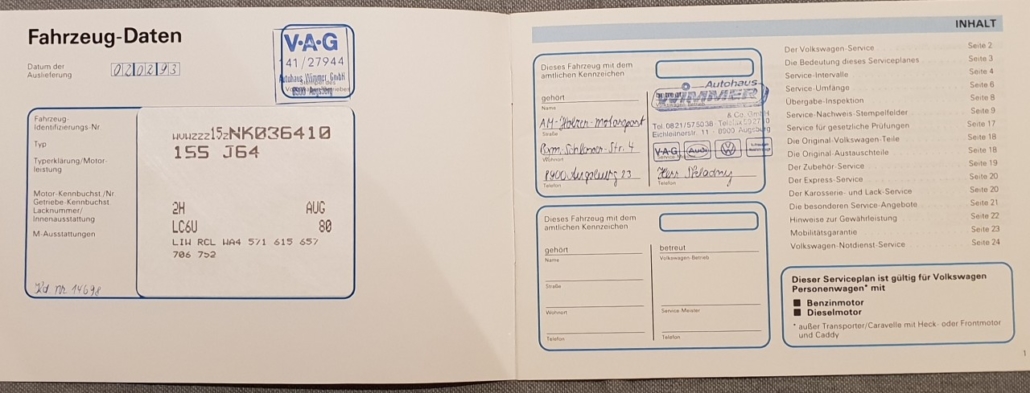 Fahrzeug-Daten
Datum der
Auslieferung
020293
V·A·G
141/27944
Autohaus Wimmer GmbH
8900 Augsburg
Fahrzeug-
Identifizierungs-Nr
WVWZZZ15ZNK036410
Typ
155 J64
Typerklärung/Motor-
leistung
Motor-Kennbuchst./Nr
Getriebe-Kennbuchst.
Lacknummer/
Innenausstattung
2H AUG
LC6U 80
M-Ausstattungen
LIW RCL WA4 571 615 657
706 752
Kd nr. 14698
INHALT
Dieses Fahrzeug mit dem
amtlichen Kennzeichen
gehört
Name
Straße
Wohnort
Telefon
Autohaus
WIMMER
& Co. GmbH
Tel. 0821/575038
Eichleitnerstr. 11 · 8900 Augsburg
V·A·G Audi
Telefon
Dieses Fahrzeug mit dem
amtlichen Kennzeichen
gehört
betreut
Name
Volkswagen-Betrieb
Straße
Wohnort
Service-Meister
Telefon
Telefon
Der Volkswagen-Service Seite 2
Die Bedeutung dieses Serviceplanes Seite 3
Service-Intervalle Seite 4
Service-Umfänge Seite 6
Übergabe-Inspektion Seite 8
Service-Nachweis-Stempelfelder Seite 9
Service für gesetzliche Prüfungen Seite 17
Die Original-Volkswagen-Teile Seite 18
Die Original-Austauschteile Seite 18
Der Zubehör-Service Seite 19
Der Express-Service Seite 20
Der Karosserie- und Lack-Service Seite 20
Die besonderen Service-Angebote Seite 21
Hinweise zur Gewährleistung Seite 22
Mobilitätsgarantie Seite 23
Volkswagen-Notdienst-Service Seite 24
Dieser Serviceplan ist gültig für Volkswagen
Personenwagen* mit
■ Benzinmotor
■ Dieselmotor
* außer Transporter/Caravelle mit Heck- oder Frontmotor
und Caddy
1